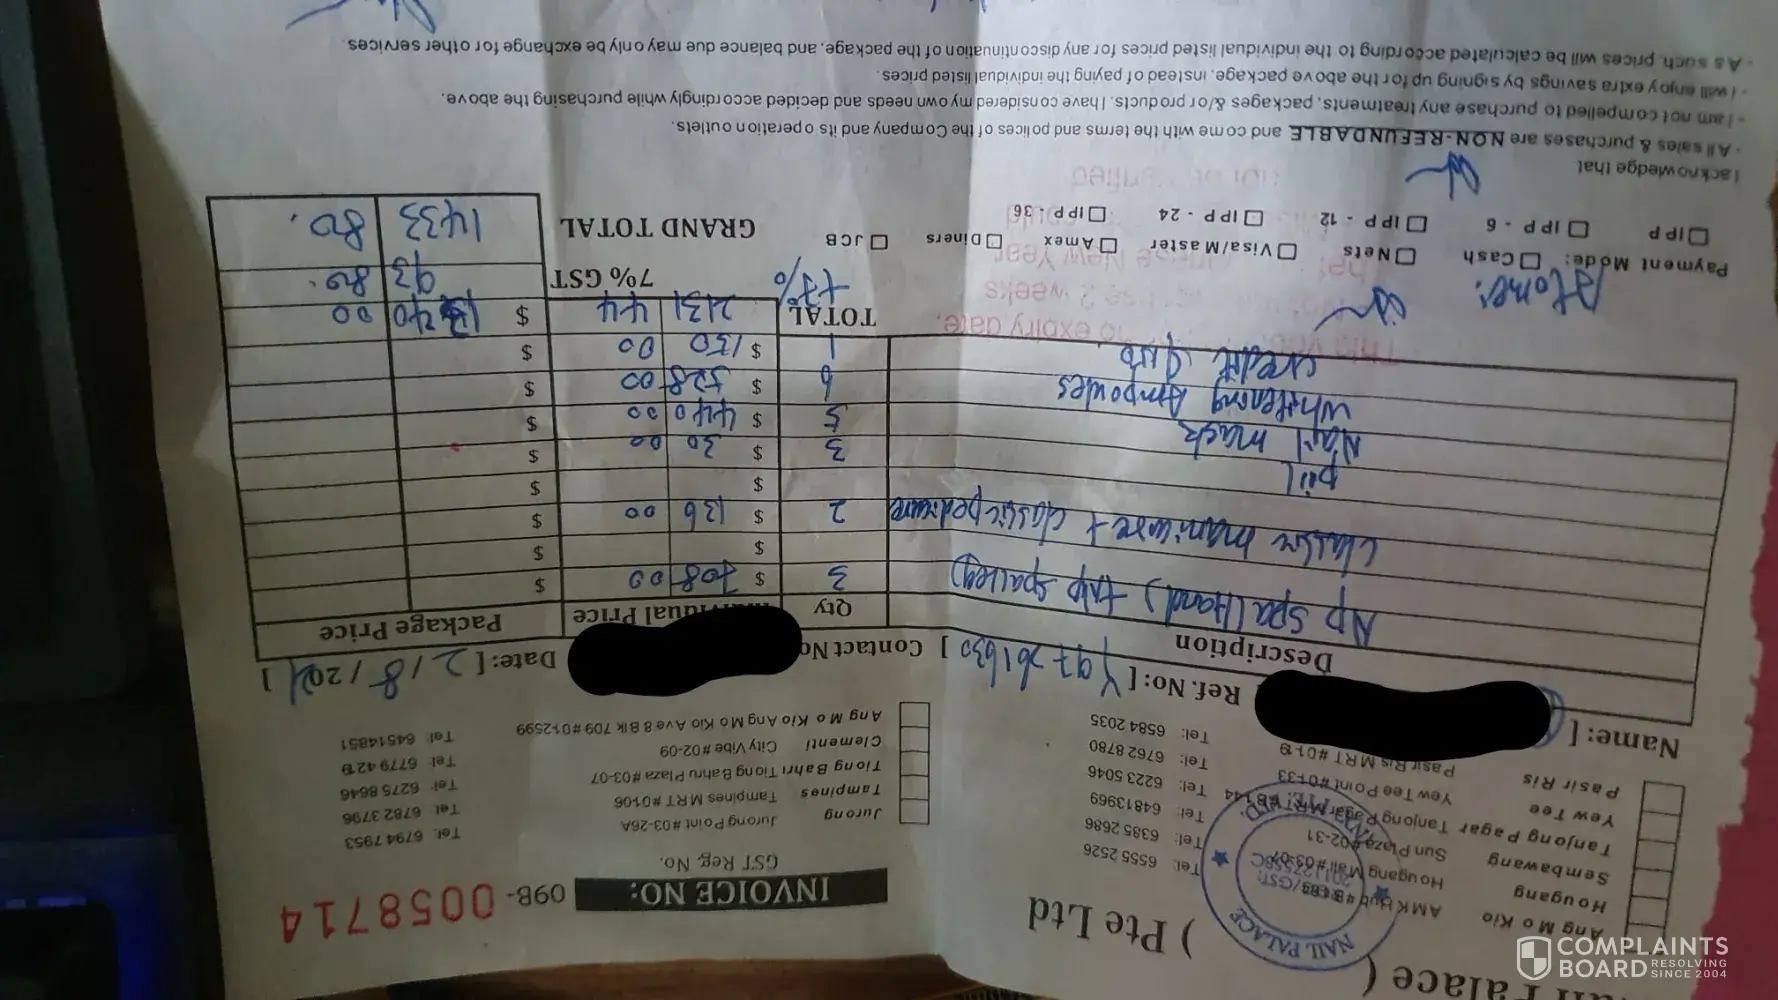 Nail Palace (      ) Pte Ltd
NAIL PALACE
INVOICE NO: 09B- 0058714
GST Reg. No.
Ang Mo Kio AMK Hub Tel: 6555 2526
Hougang Hougang Mall #03-07 Tel: 6385 2686
Sembawang Sun Plaza #02-31 Tel: 64813969
Tanjong Pagar Tanjong Pagar MRT Tel: 6223 5046
Yew Tee Yew Tee Point #01-33 Tel: 6762 8780
Pasir Ris Pasir Ris MRT #01-19 Tel: 6584 2035
Jurong Jurong Point #03-26A Tel: 6794 7953
Tampines Tampines MRT #01-06 Tel: 6782 3796
Tiong Bahru Tiong Bahru Plaza #03-07 Tel: 6275 8646
Clementi City Vibe #02-09 Tel: 6779 4219
Ang Mo Kio Ang Mo Kio Ave 8 Blk 709 #01-2599 Tel: 64514851
Name: [ Ref. No: [ Y97261630 ] Contact No Date: [ 2/8/2021 ]
Description Qty Individual Price Package Price
Np spa (Hand) + (Np spa (leg) 3 $ 708 00 $
$ $
classic manicure + classic pedicure 2 $ 136 00 $
$ $
pil 3 $ 30 00 $
Nail mask 5 $ 440 00 $
Whitening Ampoules 6 $ 528 00 $
credit $150 1 $ 150 00 $
TOTAL 2131 44 $ 1340 00
+7% 7% GST 93 80
GRAND TOTAL 1433 80.
Payment Mode: Cash Nets Visa/Master Amex Diners JCB
IPP IPP - 6 IPP - 12 IPP - 24 IPP - 36
I acknowledge that
- All sales & purchases are NON-REFUNDABLE and come with the terms and polices of the Company and its operation outlets.
- I am not compelled to purchase any treatments, packages &/or products. I have considered my own needs and decided accordingly while purchasing the above.
- I will enjoy extra savings by signing up for the above package, instead of paying the individual listed prices.
- As such, prices will be calculated according to the individual listed prices for any discontinuation of the package, and balance due may only be exchange for other services
COMPLAINTS
BOARD RESOLVING
SINCE 2004